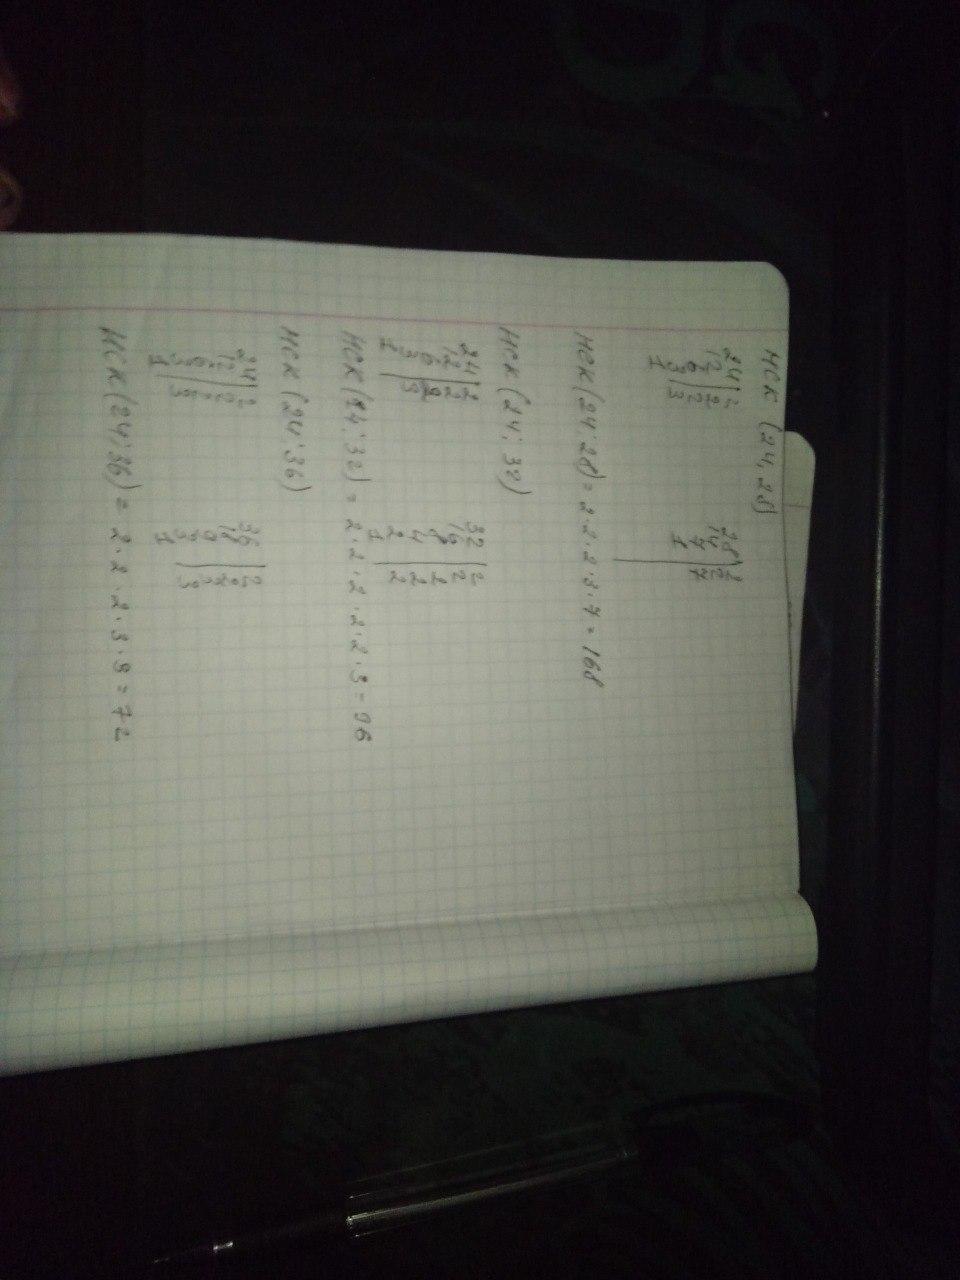 НСК (24, 28)
24|2 28|2
12|2 14|2
6|2 7|7
3|3 1
1
НСК (24; 28) = 2 · 2 · 2 · 3 · 7 = 168
НСК (24; 32)
24|2 32|2
12|2 16|2
6|2 8|2
3|3 4|2
1 2|2
1
НСК (24; 32) = 2 · 2 · 2 · 2 · 2 · 3 = 96
НСК (24; 36)
24|2 36|2
12|2 18|2
6|2 9|3
3|3 3|3
1 1
НСК (24; 36) = 2 · 2 · 2 · 3 · 3 = 72